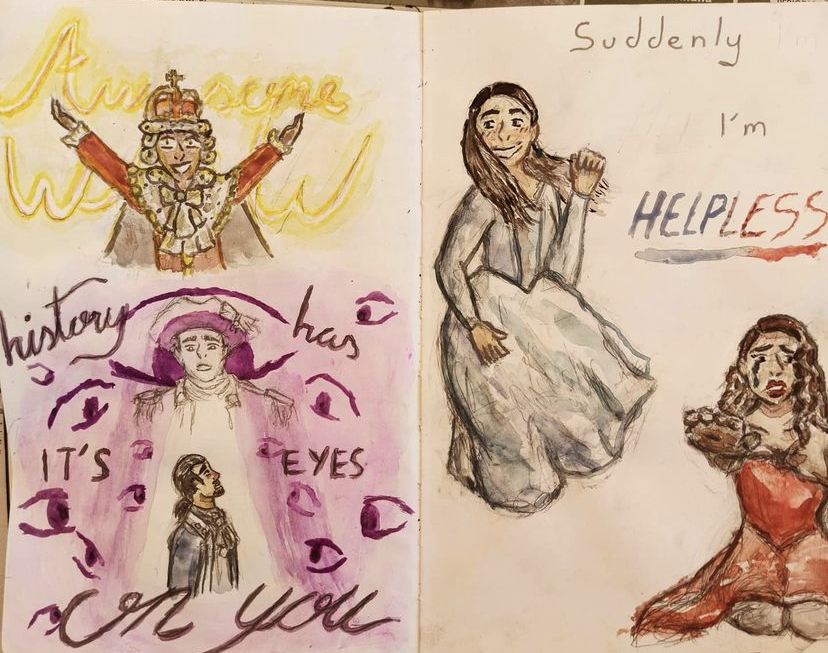 Awesome
WoW
history has
IT'S EYES
on you
Suddenly
I'm
HELPLESS